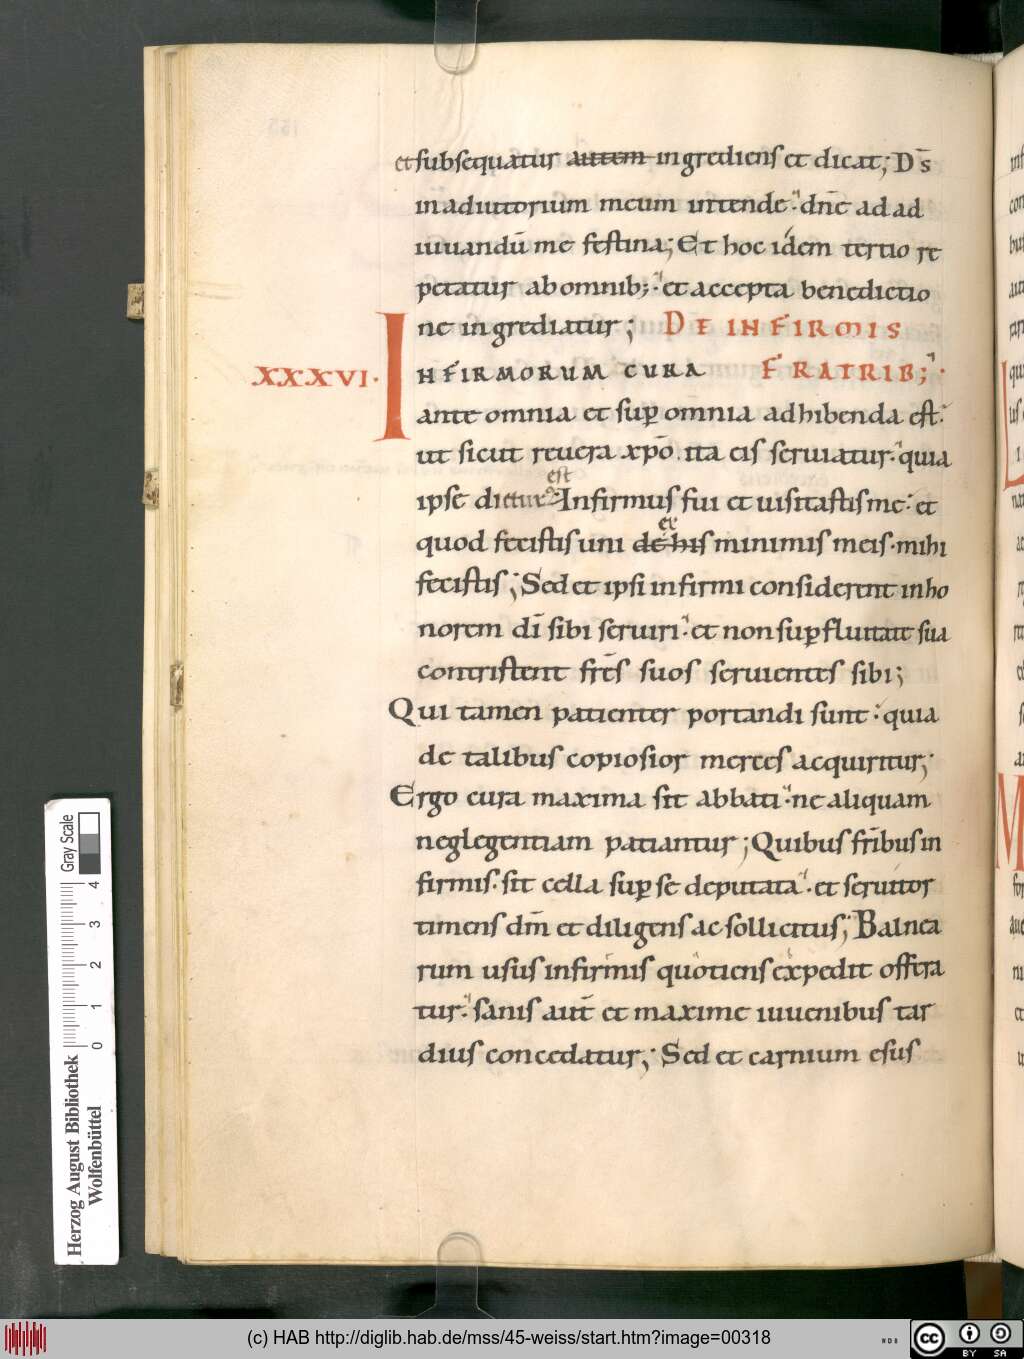 et subsequatur autem ingrediens et dicat; Ds̄
in adiutorium meum intende·dn̄e ad ad
iuuandū me festina; Et hoc idem tertio re
petatur ab omnib;· et accepta benedictio
ne ingrediatur; DE INFIRMIS
XXXVI· INFIRMORUM CURA FRATRIB;·
ante omnia et sup̱ omnia adhibenda est·
ut sicut reuera xp̄o ita eis seruiatur· quia
est
ipse dicturˢ· Infirmus fui et uisitastis me· et
ex
quod fecistis uni de his minimis meis· mihi
fecistis; Sed et ipsi infirmi considerent in ho
norem dī sibi seruiri· et non sup̱fluitate sua
contristent fr̄es suos seruientes sibi;
Qui tamen patienter portandi sunt· quia
de talibus copiosior merces acquiritur;
Ergo cura maxima sit abbati· ne aliquam
neglegentiam patiantur; Quibus fr̄ibus in
firmis· sit cella sup̱ se deputata· et seruitor
timens dm̄ et diligens ac sollicitus; Balnea
rum usus infirmis quotiens expedit offera
tur· sanis aut̄ et maxime iuuenibus tar
dius concedatur; Sed et carnium esus
Gray Scale
0 1 2 3 4
Herzog August Bibliothek
Wolfenbüttel
(c) HAB http://diglib.hab.de/mss/45-weiss/start.htm?image=00318
cc BY SA